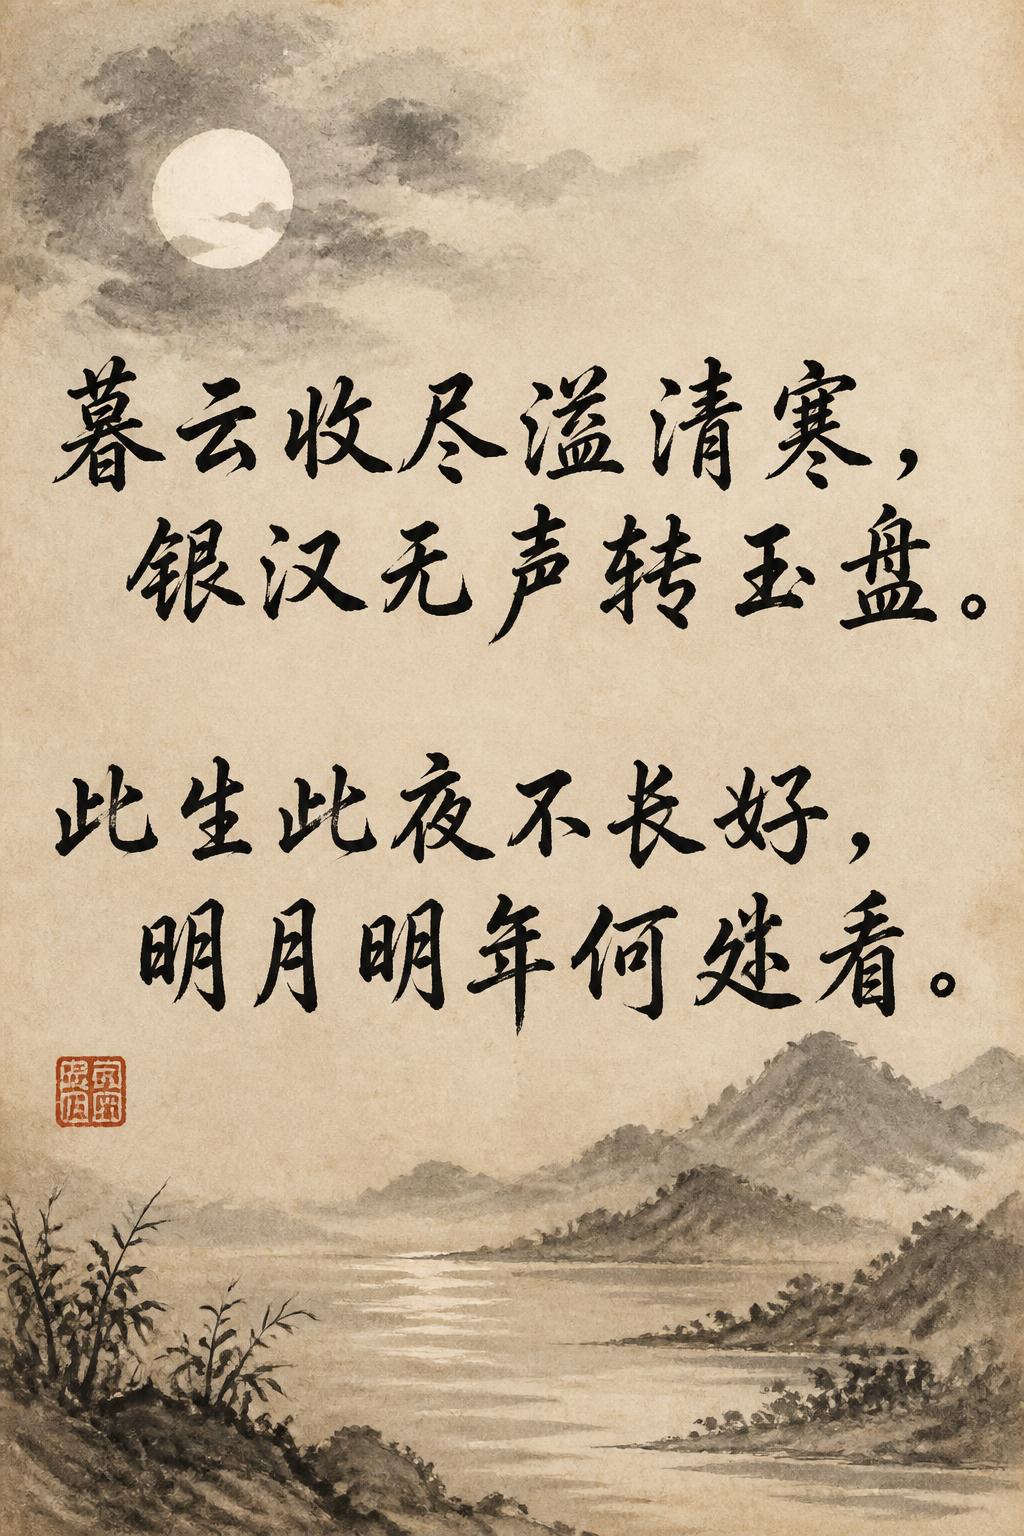 暮云收尽溢清寒，
银汉无声转玉盘。
此生此夜不长好，
明月明年何处看。